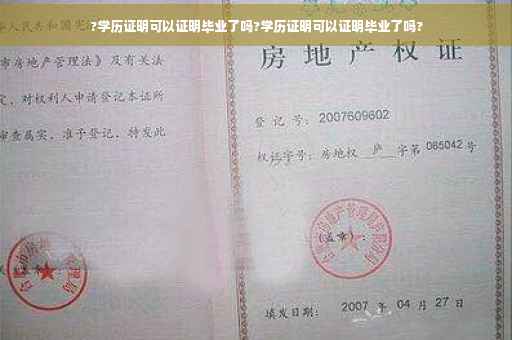 ?学历证明可以证明毕业了吗?学历证明可以证明毕业了吗?
人民共和国宪
市房地产管理法》及有关法
定，对权利人申请登记本证所
审查属实，准予登记，特发此
房地产权证
登记号：2007609602
权证字号：房地权 庐 字第 065042 号
(盖章)：
填发日期：2007 年 04 月 27 日